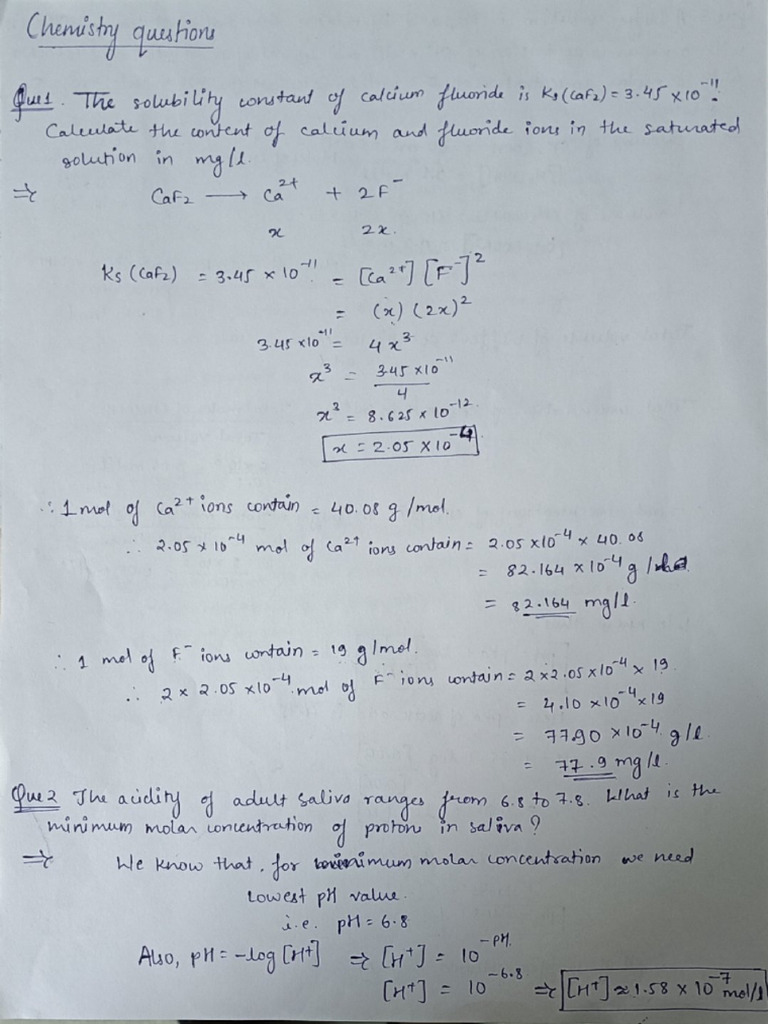 Chemistry questions
Que 1. The solubility constant of calcium fluoride is Ks(CaF2) = 3.45 × 10⁻¹¹.
Calculate the content of calcium and fluoride ions in the saturated
solution in mg/l.
⇒ CaF2 → Ca²⁺ + 2F⁻
x 2x.
Ks (CaF2) = 3.45 × 10⁻¹¹ = [Ca²⁺] [F⁻]²
= (x) (2x)²
3.45 × 10⁻¹¹ = 4x³
x³ = 3.45 × 10⁻¹¹ / 4
x³ = 8.625 × 10⁻¹².
x = 2.05 × 10⁻⁴.
∴ 1 mol of Ca²⁺ ions contain = 40.08 g/mol.
∴ 2.05 × 10⁻⁴ mol of Ca²⁺ ions contain = 2.05 × 10⁻⁴ × 40.08
= 82.164 × 10⁻⁴ g /
= 82.164 mg/l.
∴ 1 mol of F⁻ ions contain = 19 g/mol.
∴ 2 × 2.05 × 10⁻⁴ mol of F⁻ ions contain = 2 × 2.05 × 10⁻⁴ × 19.
= 4.10 × 10⁻⁴ × 19
= 77.90 × 10⁻⁴ g/l.
= 77.9 mg/l.
Que 2 The acidity of adult saliva ranges from 6.8 to 7.8. What is the
minimum molar concentration of proton in saliva?
⇒ We know that, for minimum molar concentration we need
lowest pH value.
i.e. pH = 6.8
Also, pH = -log [H⁺] ⇒ [H⁺] = 10⁻ᵖᴴ.
[H⁺] = 10⁻⁶·⁸ ⇒ [H⁺] ≈ 1.58 × 10⁻⁷ mol/l